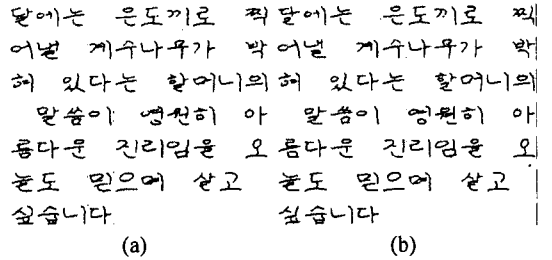 달에는 은도끼로 찍
어낼 계수나무가 박
혀 있다는 할머니의
말씀이 영원히 아
름다운 진리임을 오
늘도 믿으며 살고
싶습니다
(a)
달에는 은도끼로 찍
어낼 계수나무가 박
혀 있다는 할머니의
말씀이 영원히 아
름다운 진리임을 오
늘도 믿으며 살고
싶습니다
(b)